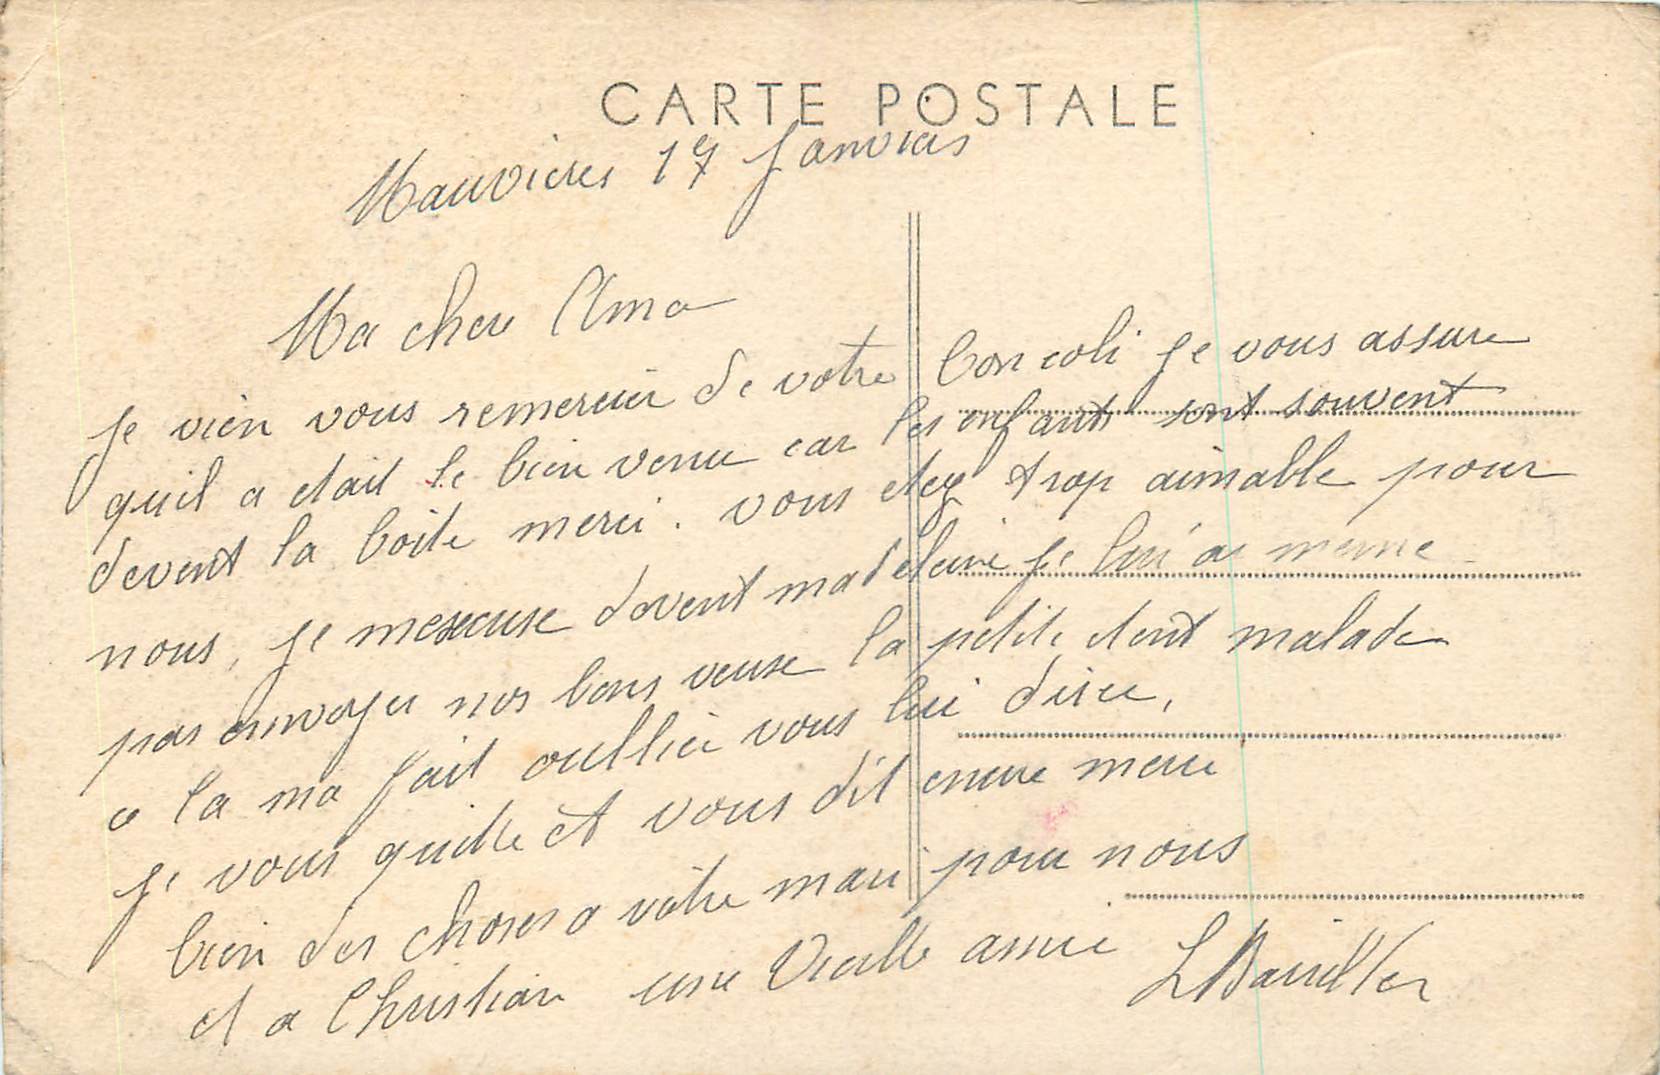 CARTE POSTALE
Mauvieres 17 Janvier
Ma chere Ama
Je vien vous remercier de votre bon coli je vous assure
quil a etait le bien venu car les enfants sont souvent
devent la boite merci. vous etez trop aimable pour
nous, je mescuse devent madeleine je lui ai meme
pas anvoyer nos bons veuse la petite etent malade
a la ma fait oulliér vous lui direz,
je vous quitte et vous dit encure merci
bien des choses a votre mari pour nous
et a Christian une Vieille amie